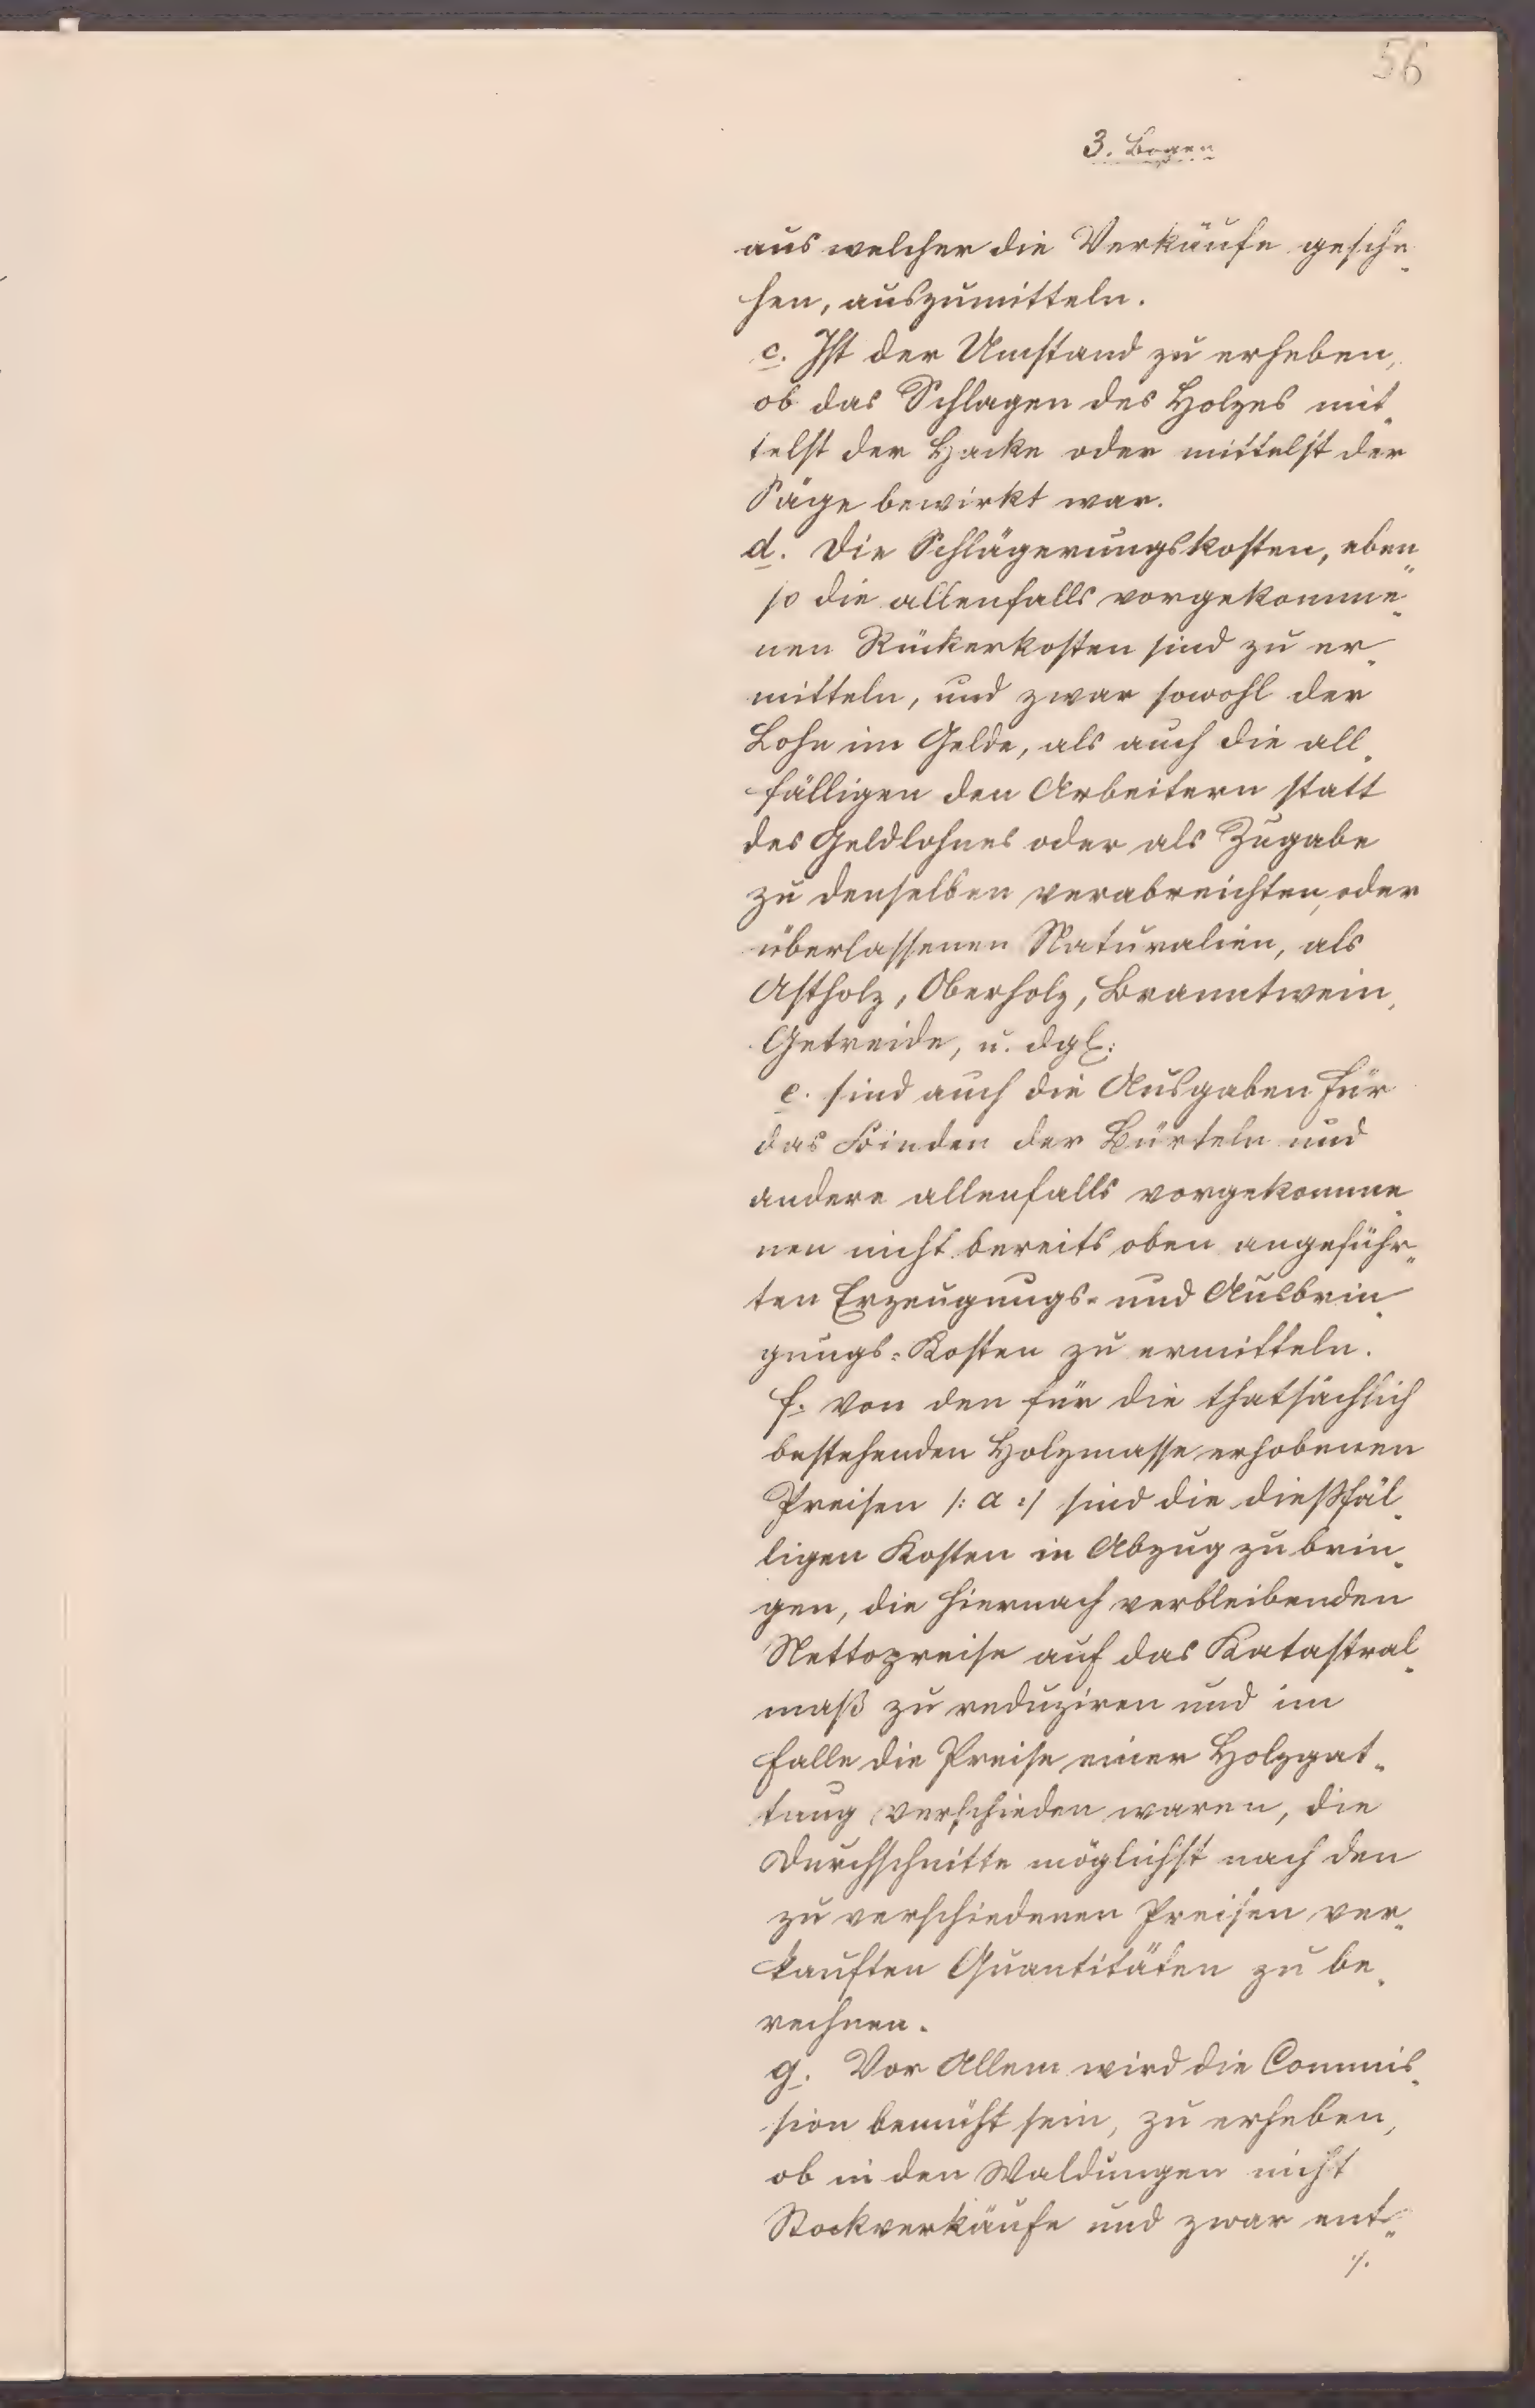 56
3. Bogen
aus welcher die Verkäufe gesche-
hen, auszumitteln.
c. Ist der Umstand zu erheben,
ob das Schlagen des Holzes mit-
telst der Hacke oder mittelst der
Säge bewirkt war.
d. Die Schlägerungskosten, eben-
so die allenfalls vorgekomme-
nen Rückerkosten sind zu er-
mitteln, und zwar sowohl der
Lohn im Gelde, als auch die all-
fälligen den Arbeitern statt
des Geldlohnes oder als Zugabe
zu denselben verabreichten, oder
überlassenen Naturalien, als
Astholz, Oberholz, Branntwein,
Getreide, u. dgl:
e. sind auch die Ausgaben für
das Binden der Bürteln und
andere allenfalls vorgekomme-
nen nicht bereits oben angeführ-
ten Erzeugungs- und Ausbrin-
gungs-Kosten zu ermitteln.
f. Von den für die thatsächlich
bestehenden Holzmasse erhobenen
Preisen /: a :/ sind die dießfäl-
ligen Kosten in Abzug zu brin-
gen, die hiernach verbleibenden
Nettopreise auf das Katastral-
maß zu reduziren und im
Falle die Preise einer Holzgat-
tung verschieden waren, die
Durchschnitte möglichst nach den
zu verschiedenen Preisen ver-
kauften Quantitäten zu be-
rechnen.
g. Vor Allem wird die Commis-
sion bemüht sein, zu erheben,
ob in den Waldungen nicht
Stockverkäufe und zwar ent-
./.